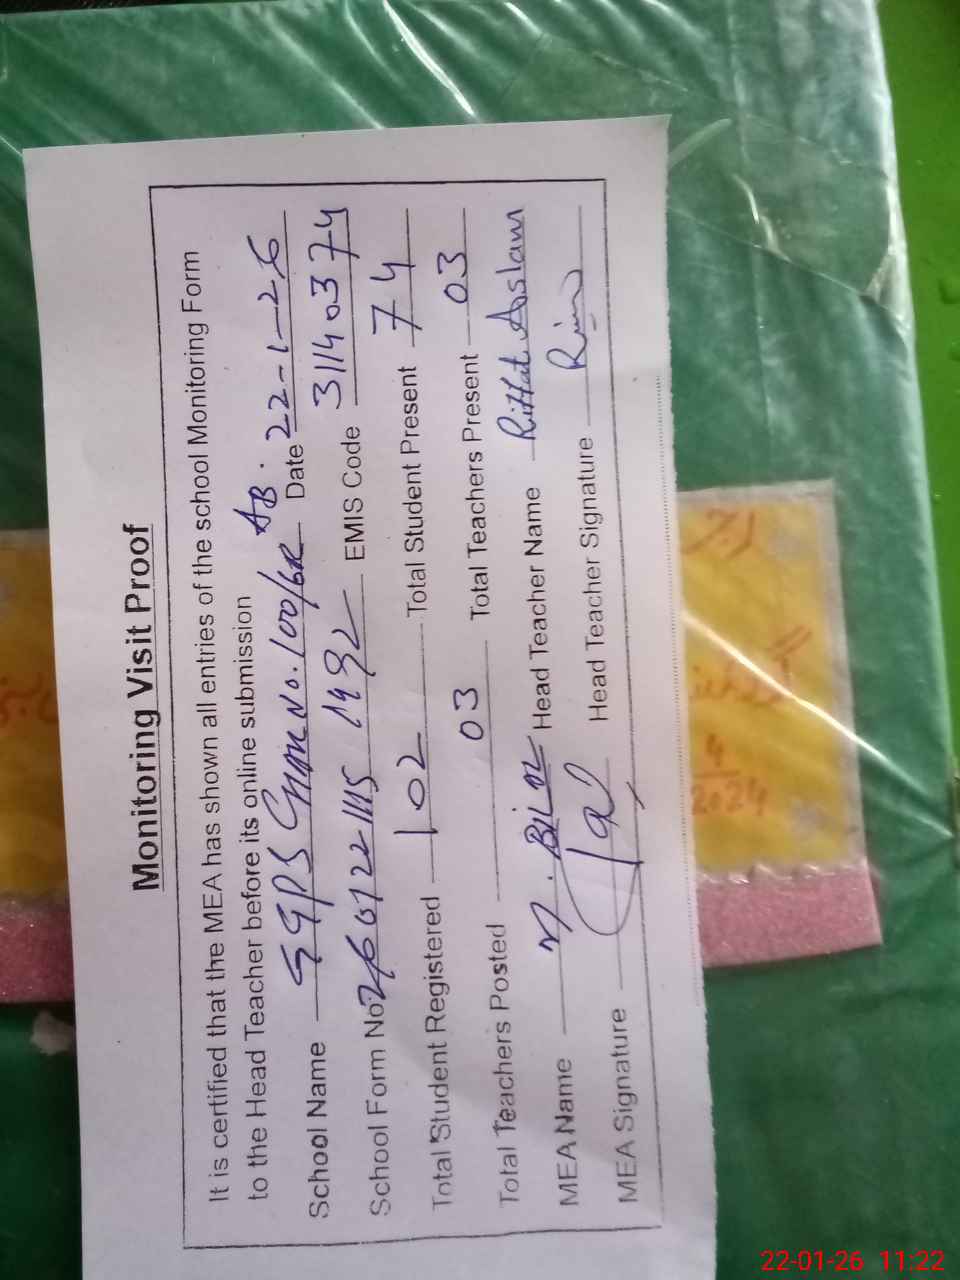 Monitoring Visit Proof
It is certified that the MEA has shown all entries of the school Monitoring Form
to the Head Teacher before its online submission
School Name GGPS Chak No. 100/6R AB. Date 22-1-26
School Form No: EMIS Code 31140374
Total Student Registered 102 Total Student Present 74
Total Teachers Posted 03 Total Teachers Present 03
MEA Name M. Bilal Head Teacher Name Riffat Aslam
MEA Signature Head Teacher Signature
4
2024
22-01-26 11:22